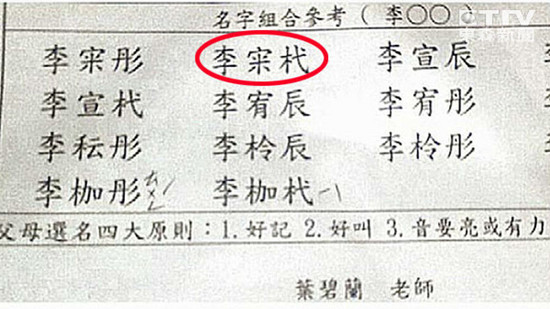 名字組合參考（李○○）
李寀彤 李寀杙 李宣辰
李宣杙 李宥辰 李宥彤
李秐彤 李柃辰 李柃彤
李枷彤 李枷杙
父母選名四大原則：1.好記 2.好叫 3.音要亮或有力
葉碧蘭 老師